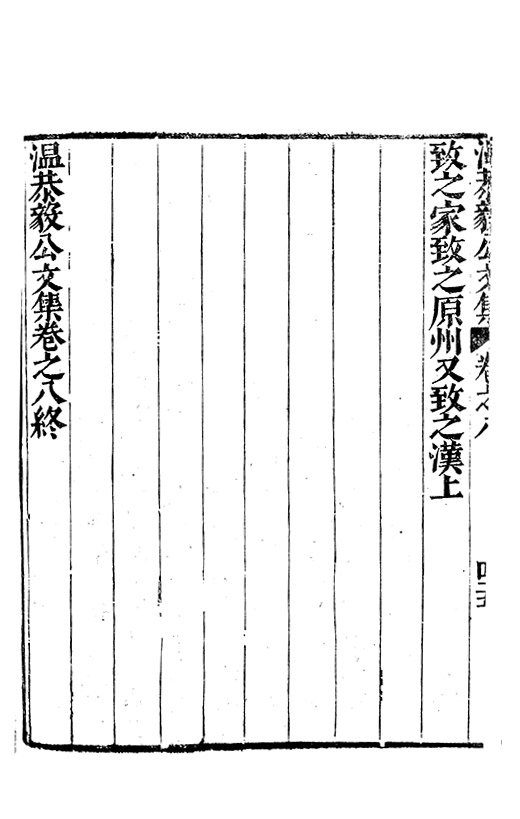 溫恭毅公文集 卷之八
致之家致之原州又致之漢上
溫恭毅公文集卷之八終